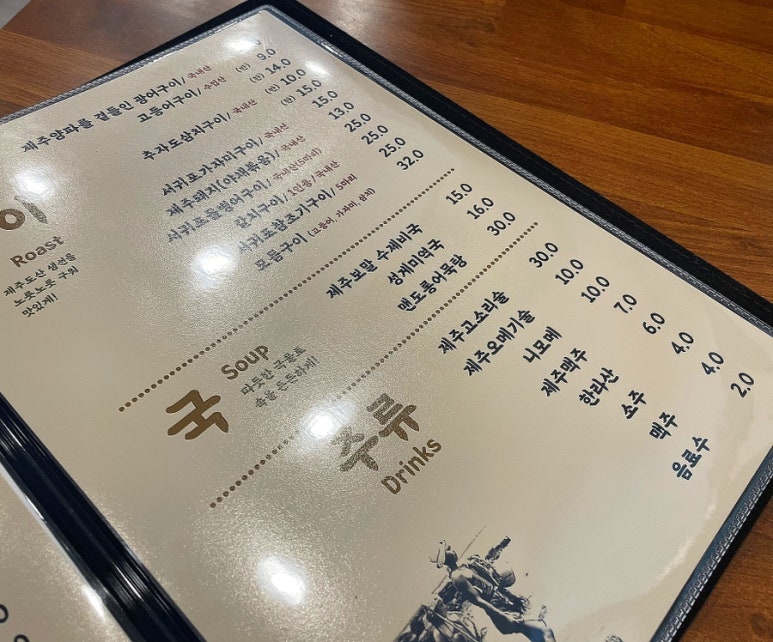 제주양파를 곁들인 광어구이/국내산
고등어구이/수입산 9.0
14.0
추자도삼치구이/국내산 10.0
15.0
서귀포가자미구이/국내산 15.0
제주돼지(야채볶음)/국내산 13.0
25.0
갈치구이/1인용/국내산 25.0
서귀포참조기구이/5마리 25.0
모듬구이(고등어, 가자미, 삼치) 32.0
이
Roast
제주도산 생선을
노릇노릇 구워
맛있게!
제주보말 수제비국 15.0
성게미역국 16.0
맨도롱어묵탕 30.0
국
Soup
따듯한 국물로
속을 든든하게!
제주고소리술 30.0
제주오메기술 10.0
니모메 10.0
제주맥주 7.0
한라산 6.0
소주 4.0
맥주 4.0
음료수 2.0
주류
Drinks